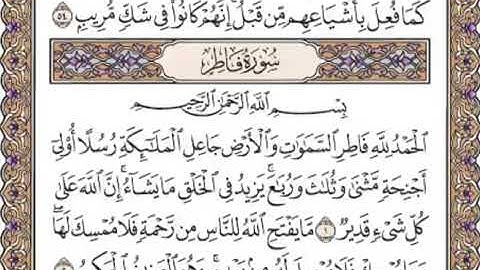 كَمَا فُعِلَ بِأَشْيَاعِهِم مِّن قَبْلُ ۚ إِنَّهُمْ كَانُوا۟ فِى شَكٍّ مُّرِيبٍۭ ٥٤
سُورَةُ فَاطِرٍ
بِسْمِ ٱللَّهِ ٱلرَّحْمَٰنِ ٱلرَّحِيمِ
ٱلْحَمْدُ لِلَّهِ فَاطِرِ ٱلسَّمَٰوَٰتِ وَٱلْأَرْضِ جَاعِلِ ٱلْمَلَٰٓئِكَةِ رُسُلًا أُو۟لِىٓ
أَجْنِحَةٍ مَّثْنَىٰ وَثُلَٰثَ وَرُبَٰعَ ۚ يَزِيدُ فِى ٱلْخَلْقِ مَا يَشَآءُ ۚ إِنَّ ٱللَّهَ عَلَىٰ
كُلِّ شَىْءٍ قَدِيرٌ ١ مَّا يَفْتَحِ ٱللَّهُ لِلنَّاسِ مِن رَّحْمَةٍ فَلَا مُمْسِكَ لَهَا ۖ